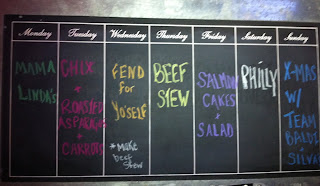 Monday Tuesday Wednesday Thursday Friday Saturday Sunday
MAMA
LINDA'S
CHIX
+
ROASTED
ASPARAGUS
+
CARROTS
FEND
for
YO'SELF
*Make
beef
stew
BEEF
STEW
SALMON
CAKES
+
SALAD
PHILLY
X-MAS
W/
TEAM
BALDI
+